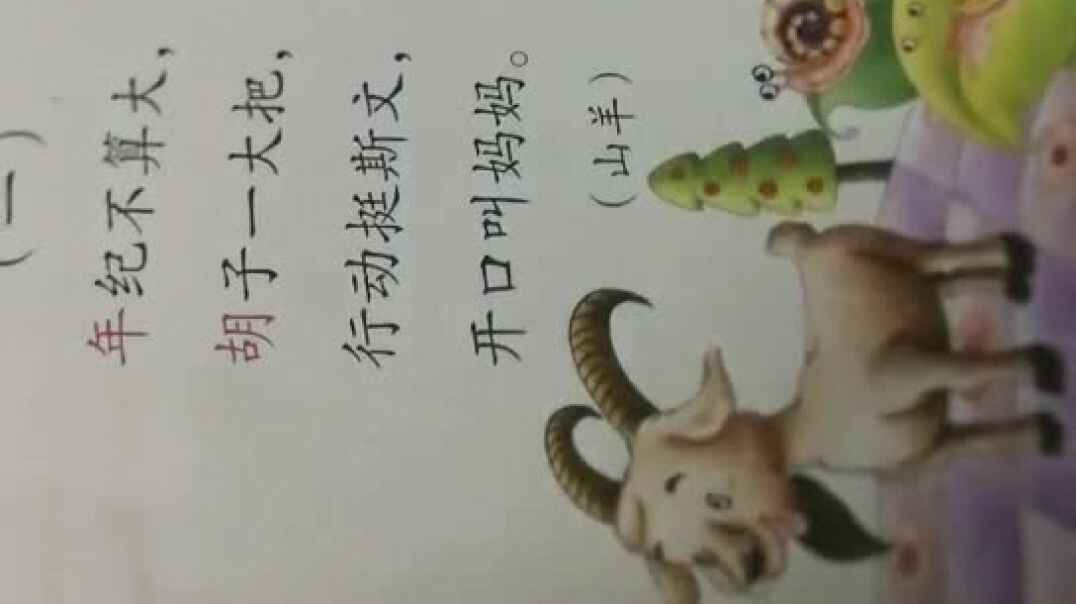 （二）
年纪不算大，
胡子一大把，
行动挺斯文，
开口叫妈妈。
（山羊）